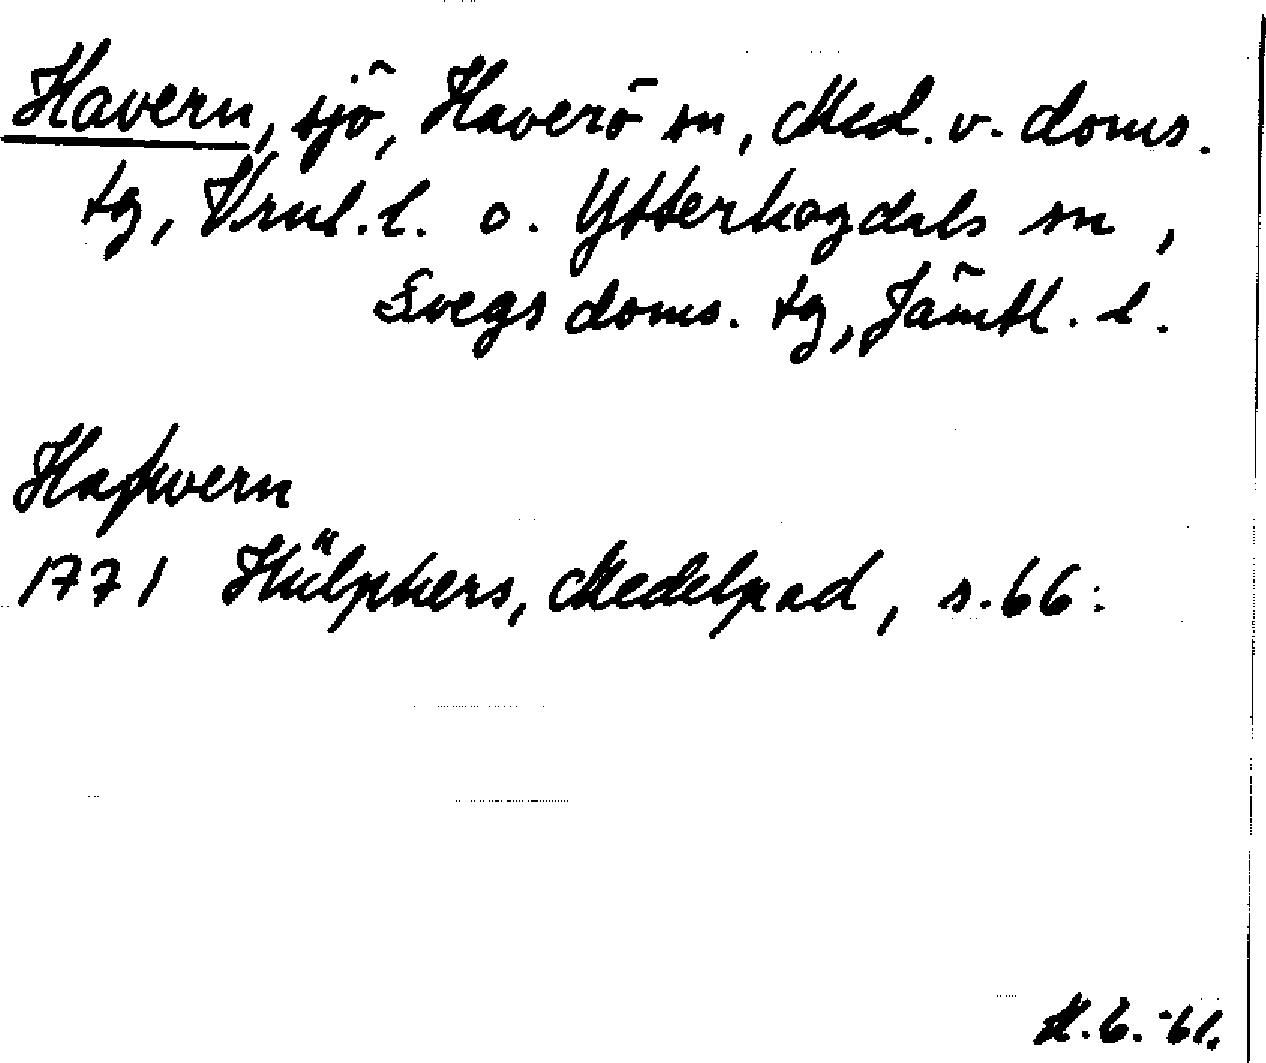 Havern, sjö, Haverö sn, Med. v. doms.
tg, Vrnl. l. o. Ytterhogdals sn,
Svegs doms. tg, Jämtl. l.
Hafwern
1771 Hülphers, Medelpad, s. 66.
M. E. -61.